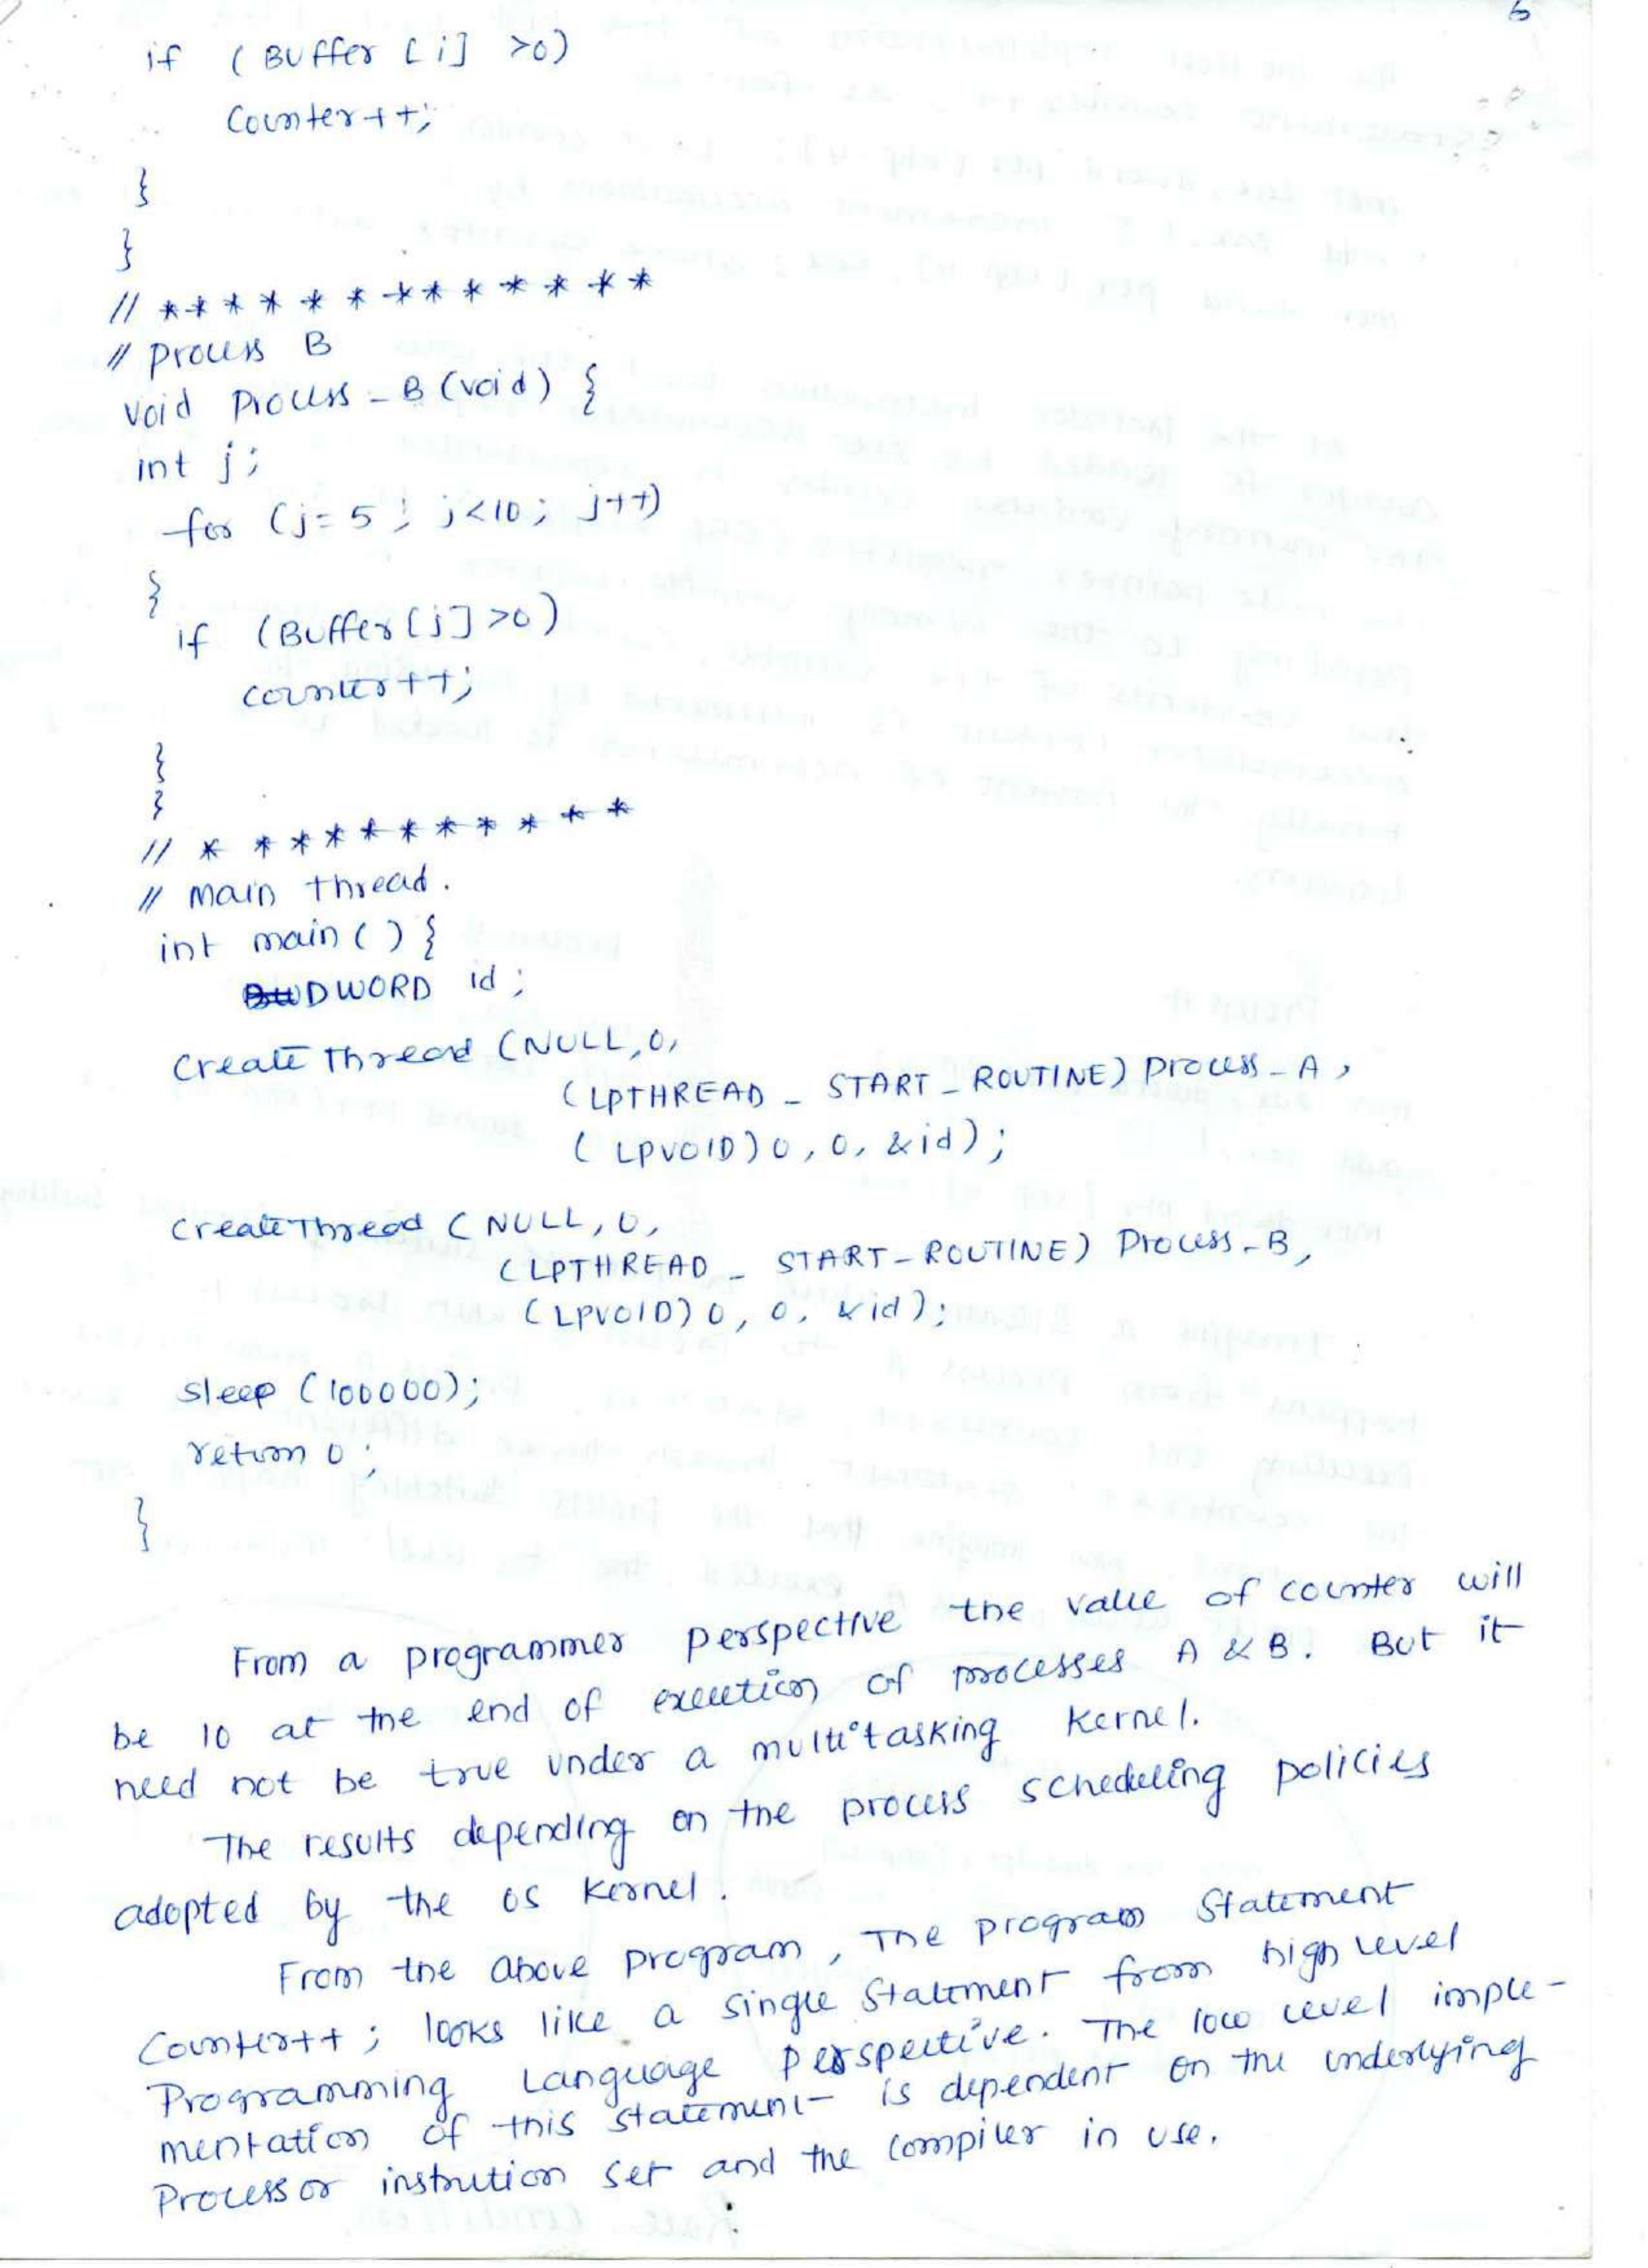 6
if ( Buffer [i] >0)
Counter++;
}
}
// * * * * * * * * * * * * * *
// process B
void Process_B (void) {
int j;
for (j=5; j<10; j++)
{
if (Buffer[j]>0)
counter++;
}
}
// * * * * * * * * * * * *
// main thread.
int main() {
DWORD id;
Create Thread (NULL,0,
(LPTHREAD_START_ROUTINE) Process_A,
(LPVOID) 0, 0, &id);
CreateThread (NULL, 0,
(LPTHREAD_START_ROUTINE) Process_B,
(LPVOID) 0, 0, &id);
sleep (100000);
return 0;
}
From a programmer perspective the value of counter will
be 10 at the end of execution of processes A & B. But it
need not be true under a multitasking kernel.
The results depending on the process scheduling policies
adopted by the OS kernel.
From the above program, The program Statement
Counter++; looks like a single Statement from high level
Programming Language perspective. The low level imple-
mentation of this statement is dependent on the underlying
Processor instrution set and the compiler in use.